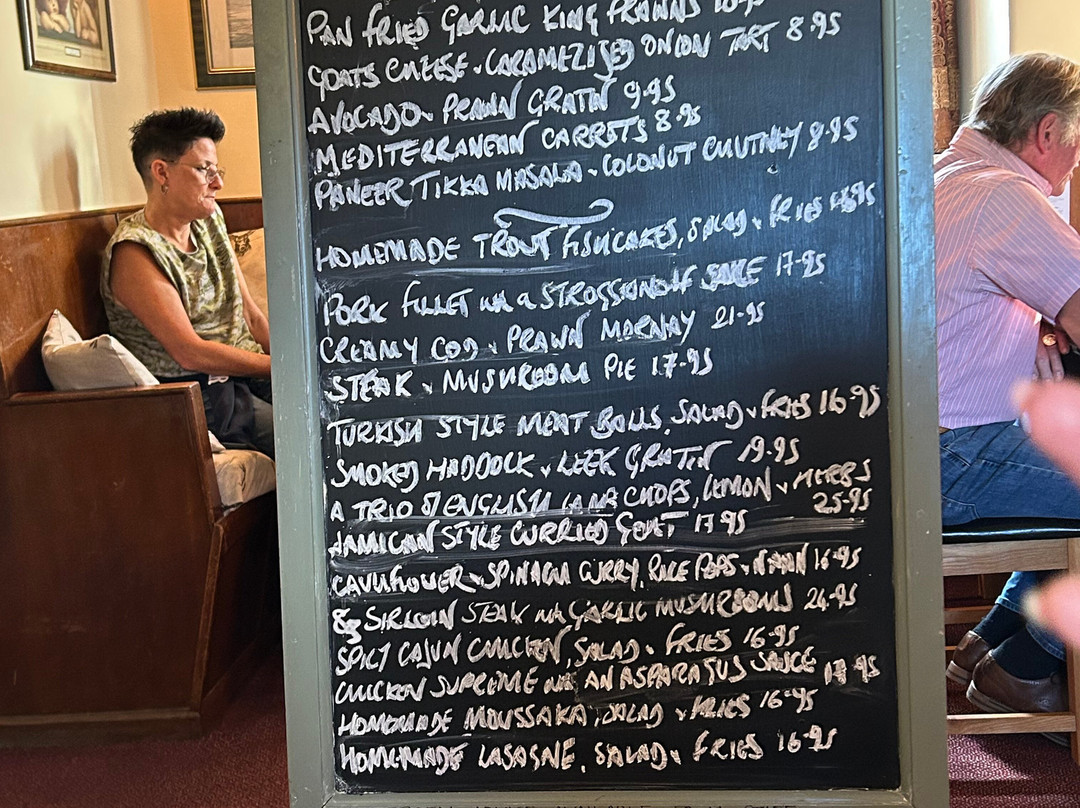 PAN FRIED GARLIC KING PRAWNS
GOATS CHEESE & CARAMELIZED ONION TART 8.95
AVOCADO & PRAWN GRATIN 9.95
MEDITERRANEAN CARROTS 8.95
PANEER TIKKA MASALA & COCONUT CHUTNEY 8.95
HOMEMADE TROUT FISHCAKES, SALAD & FRIES
PORK FILLET IN A SAUCE 17.95
CREAMY COD & PRAWN MORNAY 21.95
STEAK & MUSHROOM PIE 17.95
TURKISH STYLE MEAT BALLS, SALAD & FRIES 16.95
SMOKED HADDOCK & LEEK GRATIN 19.95
A TRIO OF ENGLISH LAMB CHOPS, LEMON & HERBS
25.95
JAMICAN STYLE CURRIED GOAT 17.95
CAVULIFLOWER & SPINACH CURRY, RICE & NAAN 16.95
8oz SIRLOIN STEAK IN GARLIC MUSHROOMS 24.95
SPICY CAJUN CHICKEN, SALAD & FRIES 16.95
CHICKEN SUPREME IN AN ASPARAGUS SAUCE 17.95
HOMEMADE MOUSSAKA, SALAD & FRIES 16.95
HOMEMADE LASAGNE, SALAD & FRIES 16.95